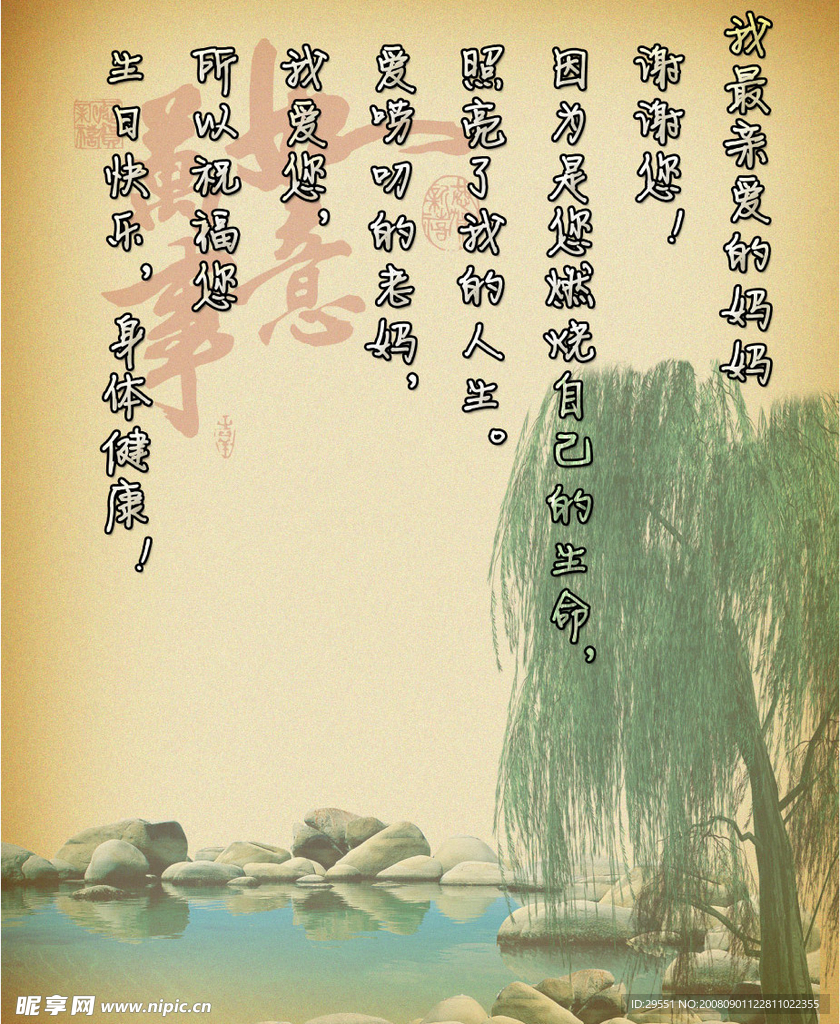 我最亲爱的妈妈
谢谢您！
因为是您燃烧自己的生命，
照亮了我的人生。
爱唠叨的老妈，
我爱您，
所以祝福您
生日快乐，身体健康！
万事如意
昵享网 www.nipic.cn
ID:29551 NO:20080901122811022355